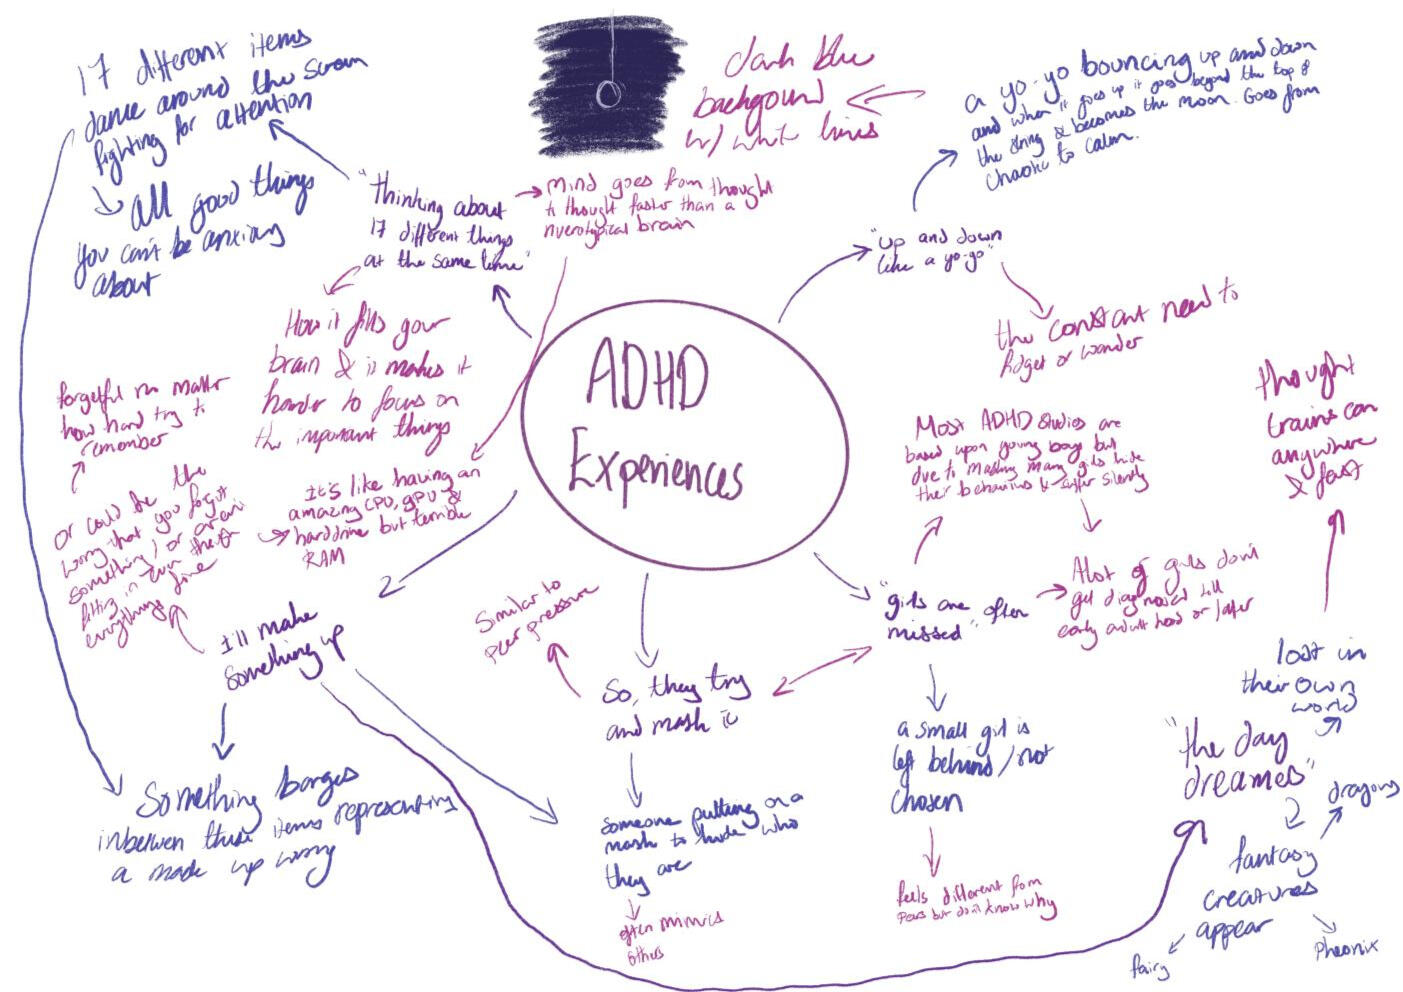 ADHD
Experiences
"thinking about
17 different things
at the same time"
17 different items
dance around the screen
fighting for attention
all good things
you can't be anxious
about
mind goes from thought
to thought faster than a
nuerotypical brain
How it fills your
brain & it makes it
harder to focus on
the important things
It's like having an
amazing CPU, GPU &
harddrive but terrible
RAM
dark blue
backgound
w/ white lines
a yo-yo bouncing up and down
and when it goes up it goes beyond the top of
the string & becomes the moon. Goes from
chaotic to calm.
"up and down
like a yo-yo"
the constant need to
fidget or wander
Most ADHD studies are
based upon young boys but
due to masking many girls hide
their behaviours & suffer silently
"girls are often
missed"
Alot of girls don't
get diagnosed till
early adulthood or later
a small girl is
left behind/not
chosen
feels different from
peers but don't know why
So, they try
and mask it
Similar to
peer pressure
someone putting on a
mask to hide who
they are
often mimics
others
I'll make
something up
or could be the
worry that you forgot
something/or aren't
fitting in even though
everythings fine
forgetful no matter
how hard try to
remember
Something barges
inbetween these items representing
a made up worry
"the day
dreamer"
lost in
their own
world
thought
trains can
anywhere
& fast
fantasy
creatures
appear
dragons
fairy
Pheonix